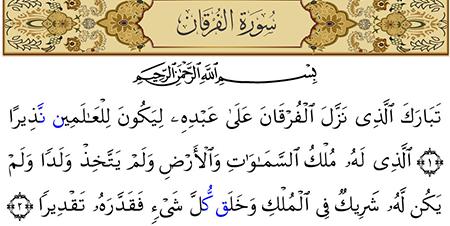 سُورَةُ الفُرْقَان
بِسْمِ اللَّهِ الرَّحْمَٰنِ الرَّحِيمِ
تَبَارَكَ الَّذِى نَزَّلَ الْفُرْقَانَ عَلَىٰ عَبْدِهِۦ لِيَكُونَ لِلْعَالَمِينَ نَّذِيرًا
﴿١﴾ الَّذِى لَهُۥ مُلْكُ السَّمَاوَاتِ وَالْأَرْضِ وَلَمْ يَتَّخِذْ وَلَدًا وَلَمْ
يَكُن لَّهُۥ شَرِيكٌ فِى الْمُلْكِ وَخَلَق كُّلَّ شَىْءٍ فَقَدَّرَهُۥ تَقْدِيرًا ﴿٢﴾